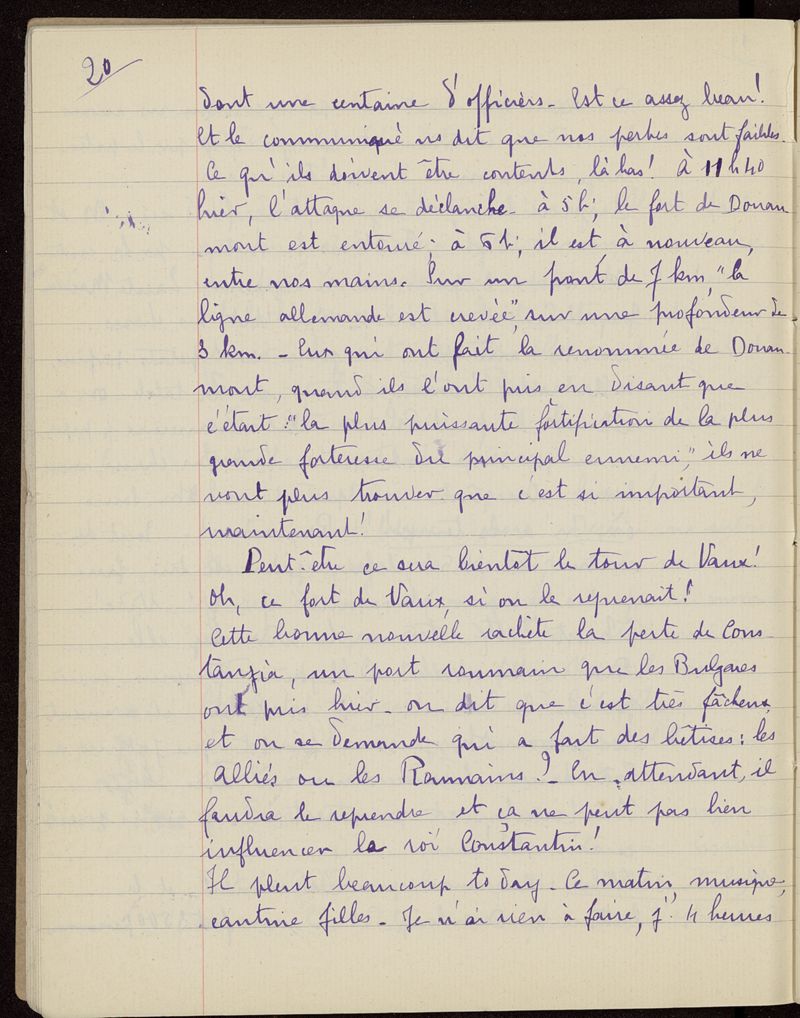 20
dont une centaine d'officiers - Est ce assez beau!
Et le communiqué ns dit que nos pertes sont faibles.
Ce qu'ils doivent être contents, là bas! à 11 h 40
hier, l'attaque se déclanche. à 5 h; le fort de Douau
mont est entouré; à 6 h; il est, à nouveau,
entre nos mains. Sur un front de 7 km, "la
ligne allemande est crevée", sur une profondeur de
3 km. - Eux qui ont fait la renommée de Douau-
mont, quand ils l'ont pris en disant que
c'était: "la plus puissante fortification de la plus
grande forteresse du principal ennemi", ils ne
vont plus trouver que c'est si important,
maintenant!
Peut-être ce sera bientôt le tour de Vaux!
Oh, ce fort de Vaux, si on le reprenait!
Cette bonne nouvelle rachète la perte de Cons-
tanzia, un port roumain que les Bulgares
ont pris hier - on dit que c'est très fâcheux,
et on se demande qui a fait des bêtises: les
Alliés ou les Roumains?! - En attendant, il
faudra le reprendre et ça ne peut pas bien
influencer le roi Constantin!
Il pleut beaucoup to day - Ce matin, musique,
cantine filles - Je n'ai rien à faire, 4 heures